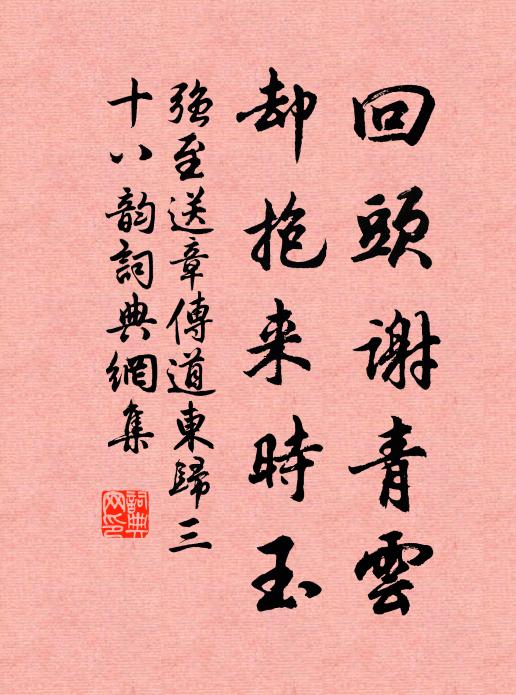 回頭謝青雲
却抱来時玉
強至送章傳道東歸三
十八韵詞典網集
詞典
网印